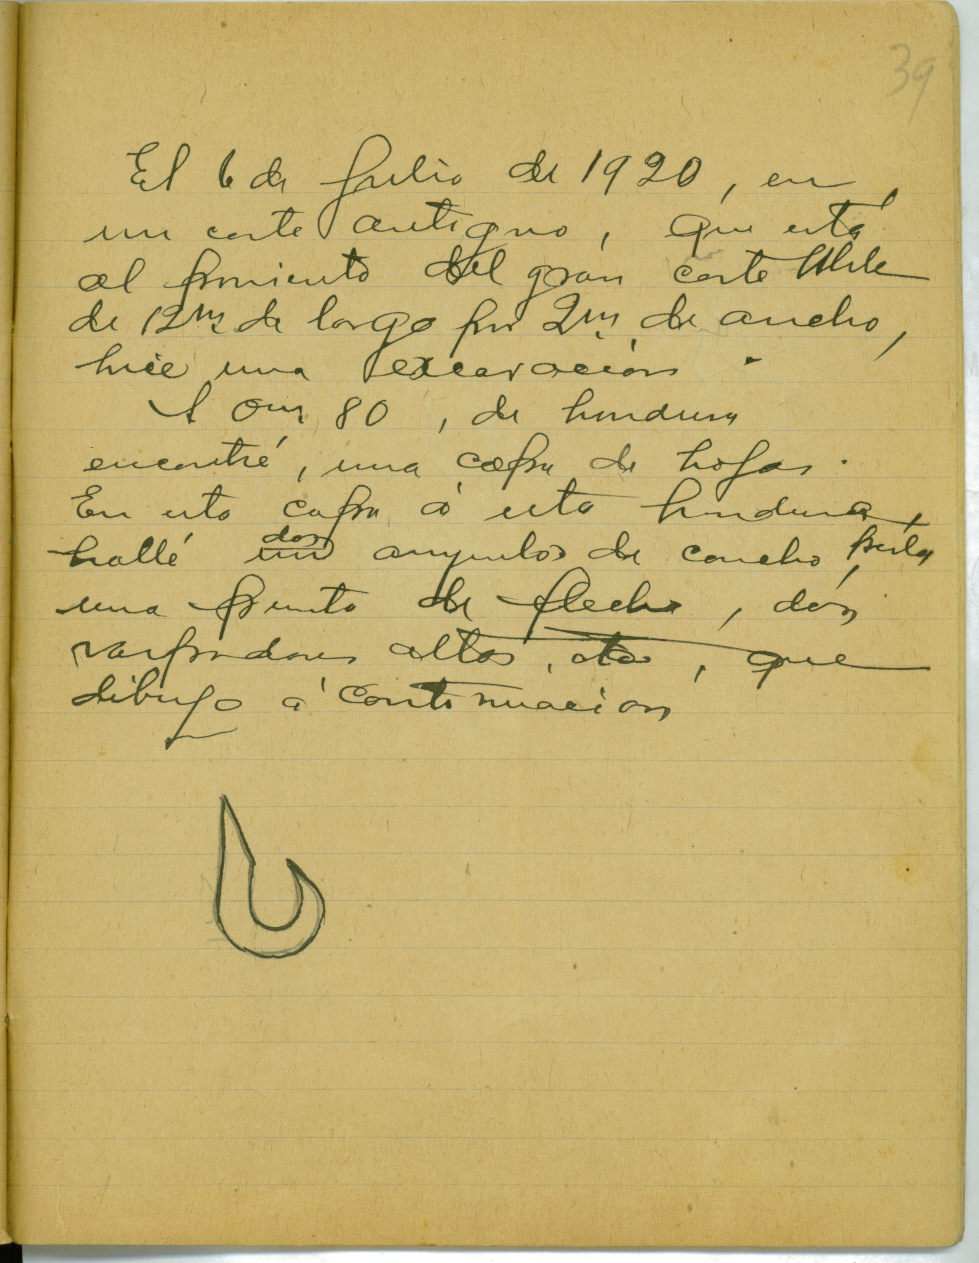 39
El 6 de Julio de 1920, en
un corte antiguo, que está
al poniente del gran corte Uhle
de 12 m de largo por 2 m de ancho,
hice una excavación.
A 0m 80, de hondura
encontré, una capa de hojas.
En esta capa á esta hondura,
hallé dos anzuelos de concha,
una punta de flecha, dos
raspadores altos, que
dibujo á continuación